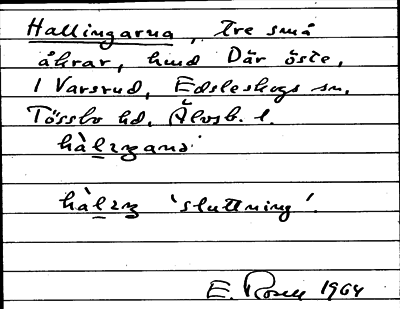 Hallingarna, tre små
åkrar, hmd Där öste,
1 Varsrud, Edsleskogs sn,
Tössbo hd, Älvsb. l.
hàlɪŋana
hàlɪŋ 'sluttning'.
E. Rosell 1964